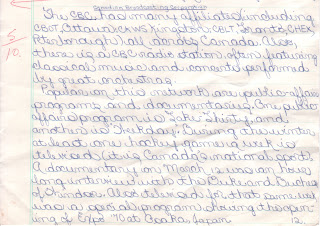 Canadian Broadcasting Corporation
5
10.
The CBC has many affiliates (including
CBOT, Ottawa; CKWS Kingston; CBLT, Toronto, CHEX
Peterborough) all across Canada. Also,
there is a CBC radio station, often featuring
classical music and concerts performed
by great orchestras.
Popular on this network are public affairs
programs and documentaries. One public
affairs program is
another is The Day. During the winter
at least one hockey game a week is
televised (it is Canada's national sport).
A documentary on March 12 was an hour
long interview with the Duke and Duchess
of Windsor. Also televised for that same week
was a special program showing the open-
ing of Expo '70 at Osaka, Japan
12.